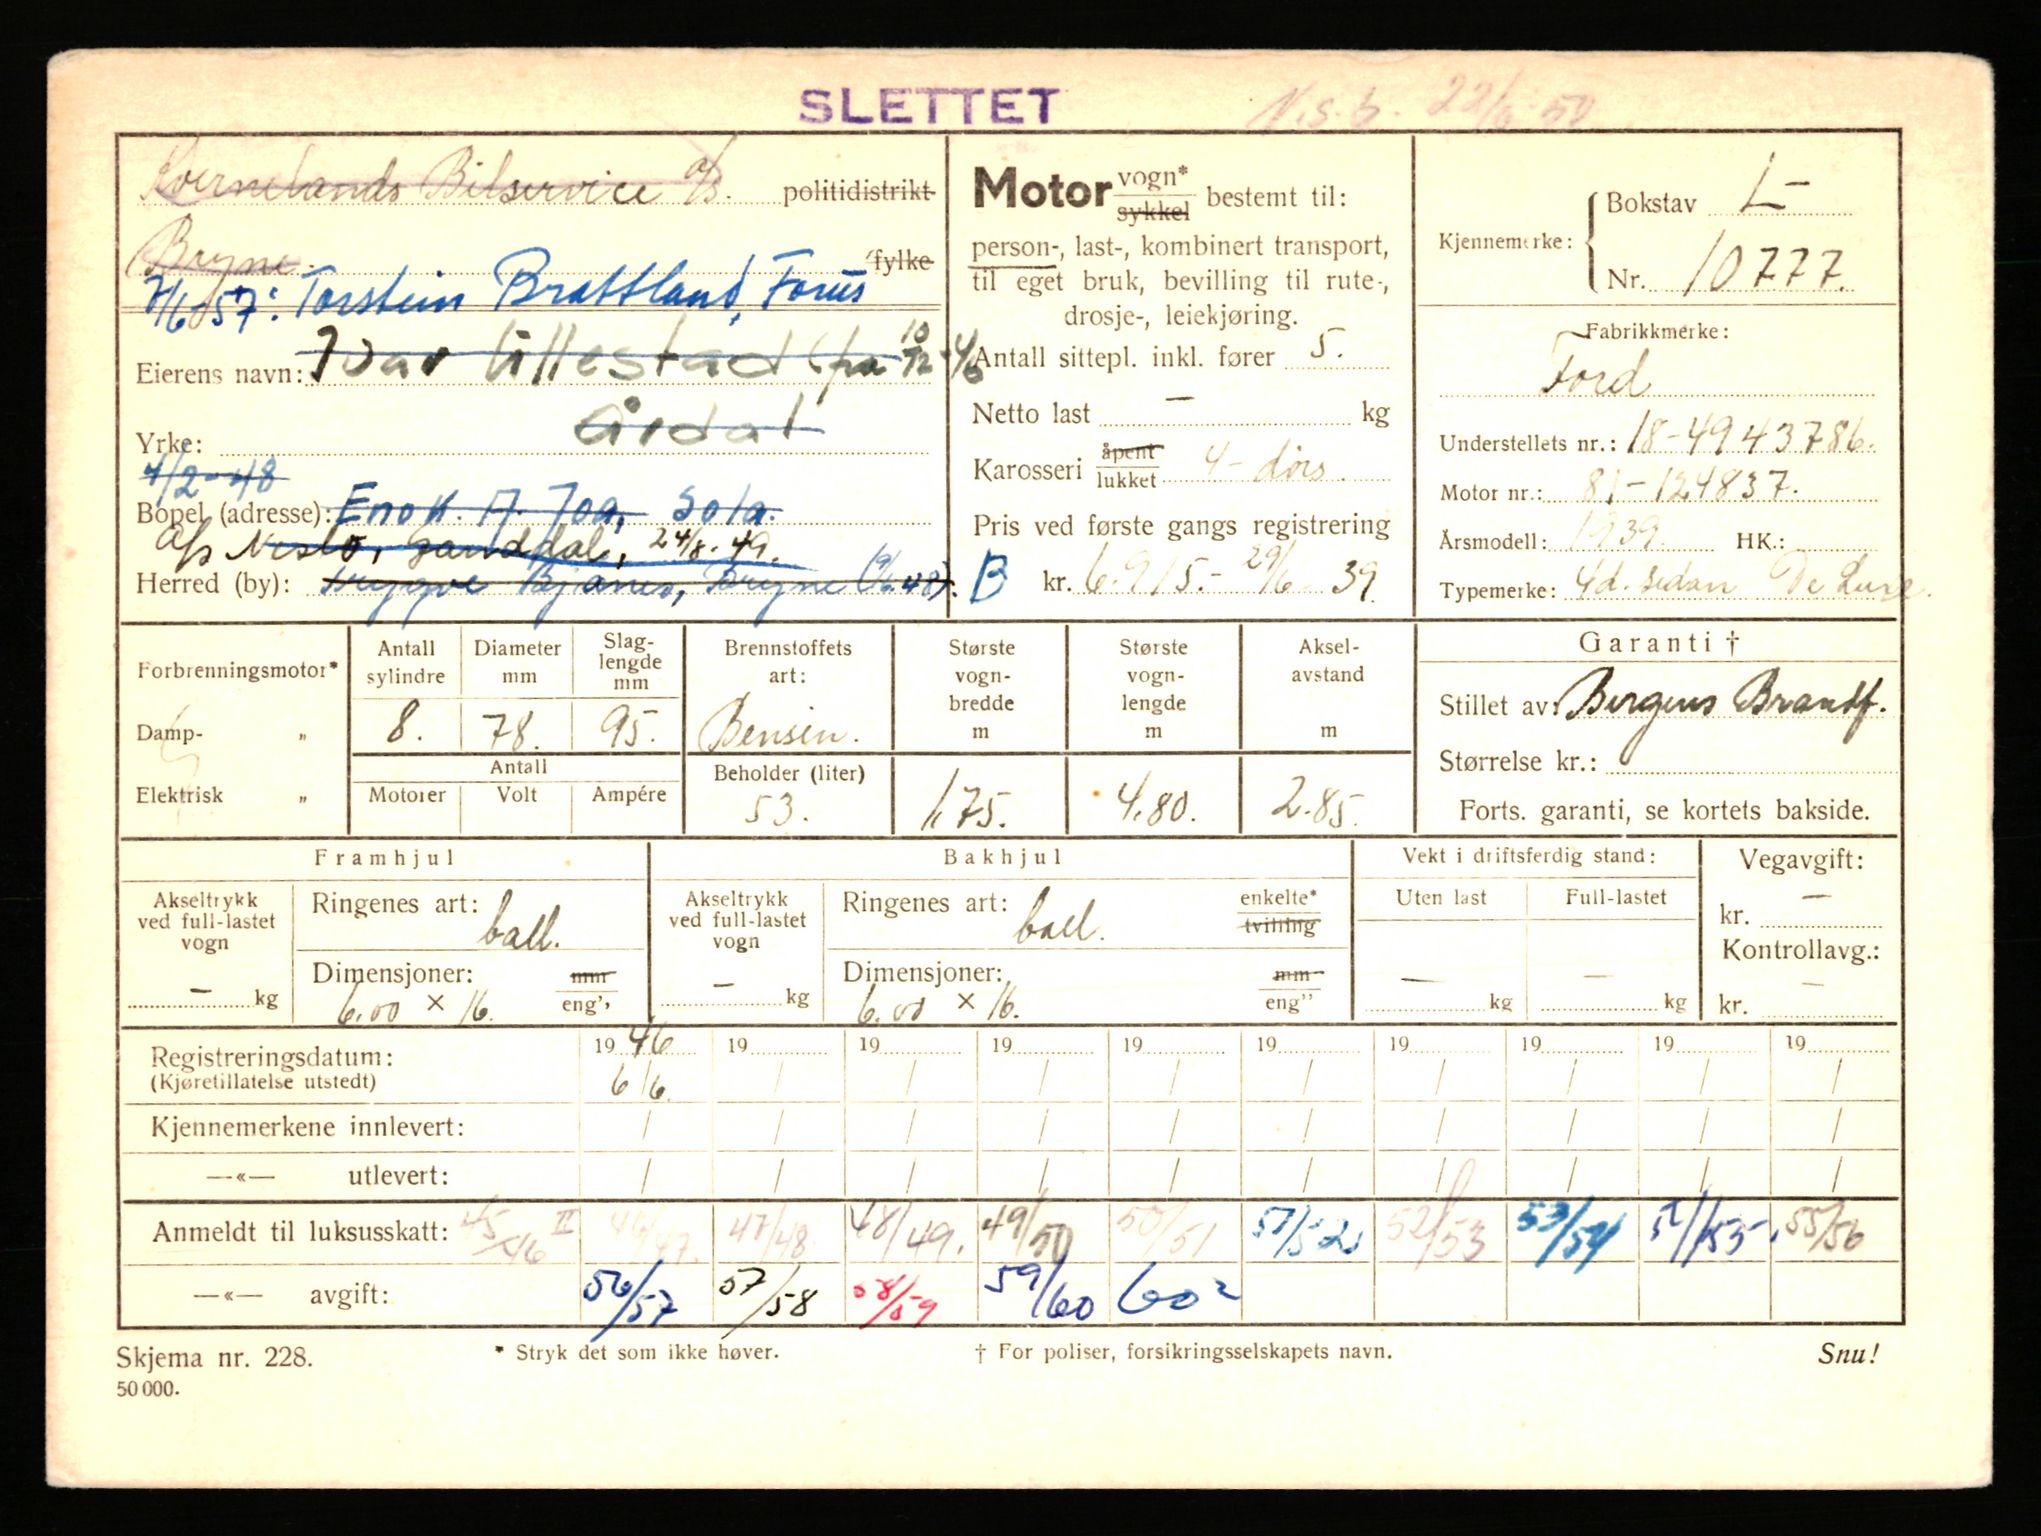 SLETTET
N.s.b. 22/6-50
Kvernelands Bilservice a/s. politidistrikt
Bryne. fylke
7/6-57: Torstein Brattland, Forus
Eierens navn: Ivar Ullestad (fra 10/12-46
Yrke: Årdal
4/2-48
Bopel (adresse): Enok A. Joa, Sola.
A/s Neslo, Ganddal, 24/8.49.
Herred (by): Tryggve Bjanes, Bryne
Motor vogn* sykkel bestemt til:
person-, last-, kombinert transport,
til eget bruk, bevilling til rute-,
drosje-, leiekjøring.
Antall sittepl. inkl. fører 5.
Netto last — kg
Karosseri åpent lukket 4-dørs.
Pris ved første gangs registrering
B kr. 6.915.- 29/6 39
Kjennemerke: Bokstav L-
Nr. 10777.
Fabrikkmerke:
Ford
Understellets nr.: 18-4943786.
Motor nr.: 81-124837.
Årsmodell: 1939. HK.:
Typemerke: 4d. sedan De Luxe.
Forbrenningsmotor*
Damp- „
Elektrisk „
Antall sylindre Diameter mm Slag-lengde mm
8. 78. 95.
Antall
Motorer Volt Ampére
Brennstoffets art:
Bensin.
Beholder (liter)
53.
Største vogn-bredde m
1,75.
Største vogn-lengde m
4.80.
Aksel-avstand m
2.85.
Garanti †
Stillet av: Bergens Brandf.
Størrelse kr.:
Forts. garanti, se kortets bakside.
Framhjul
Akseltrykk ved full-lastet vogn
— kg
Ringenes art: ball.
Dimensjoner: mm
6.00 × 16. eng"
Bakhjul
Akseltrykk ved full-lastet vogn
— kg
Ringenes art: ball. enkelte* tvilling
Dimensjoner: mm
6.00 × 16. eng"
Vekt i driftsferdig stand:
Uten last Full-lastet
— kg — kg
Vegavgift:
kr. —
Kontrollavg.:
kr. —
Registreringsdatum: 1946 19 19 19 19 19 19 19 19 19
(Kjøretillatelse utstedt) 6/6. / / / / / / / / /
Kjennemerkene innlevert: / / / / / / / / / /
—«— utlevert: / / / / / / / / / /
Anmeldt til luksusskatt: 45/46 II 46/47. 47/48 48/49. 49/50 50/51 51/52 52/53 53/54 55/56
—«— avgift: 56/57 57/58 58/59 59/60 60²
Skjema nr. 228. * Stryk det som ikke høver. † For poliser, forsikringsselskapets navn. Snu!
50 000.